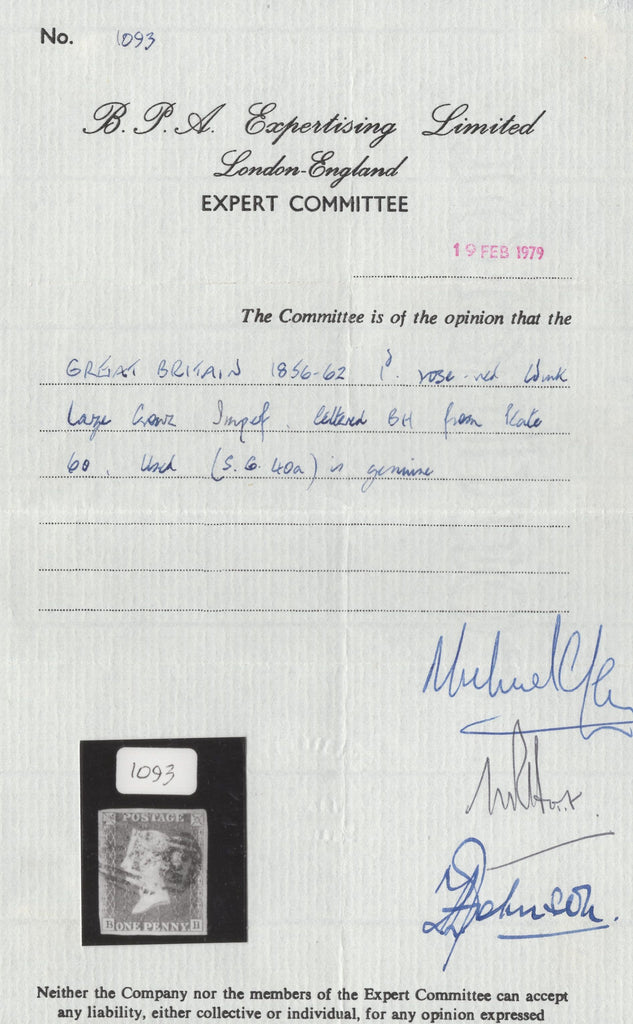 No. 1093
B. P. A. Expertising Limited
London-England
EXPERT COMMITTEE
19 FEB 1979
The Committee is of the opinion that the
GREAT BRITAIN 1856-62 1d. rose-red Wmk
Large Crown Imperf. lettered BH from Plate
60. Used (S.G. 40a) is genuine
1093
POSTAGE
B ONE PENNY H
Johnson.
Neither the Company nor the members of the Expert Committee can accept
any liability, either collective or individual, for any opinion expressed